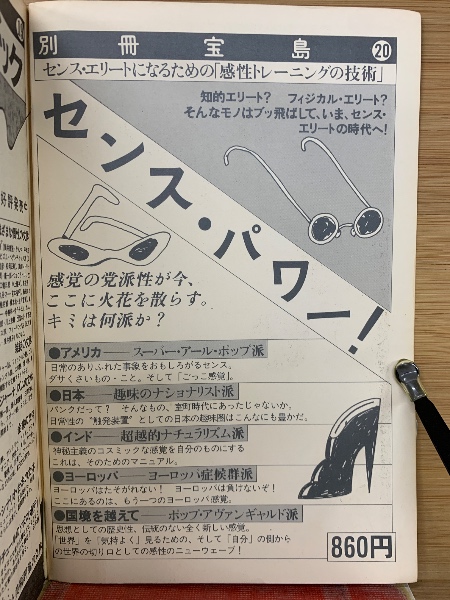 別冊宝島 20
センス・エリートになるための「感性トレーニングの技術」
知的エリート? フィジカル・エリート?
そんなモノはブッ飛ばして、いま、センス・
エリートの時代へ!
センス・パワー!
感覚の党派性が今、
ここに火花を散らす。
キミは何派か?
●アメリカ――スーパー・アール・ポップ派
日常のありふれた事象をおもしろがるセンス。
ダサくさいもの・こと。そして「ごっこ感覚」。
●日本――趣味のナショナリスト派
パンクだって? そんなもの、室町時代にあったじゃないか。
日常性の"触発装置"としての日本の趣味図はこんなにも豊かだ。
●インド――超越的ナチュラリズム派
神秘主義のコスミックな感覚を自分のものにする
これは、そのためのマニュアル。
●ヨーロッパ――ヨーロッパ症候群派
ヨーロッパはたそがれない! ヨーロッパは負けないぞ!
ここにあるのは、もう一つのヨーロッパ感覚。
●国境を越えて――ポップ・アヴァンギャルド派
思想としての歴史性、伝統のない全く新しい感覚。
「世界」を「気持よく」見るための、そして「自分」の側から
の世界の切り口としての感性のニューウェーブ!
860円